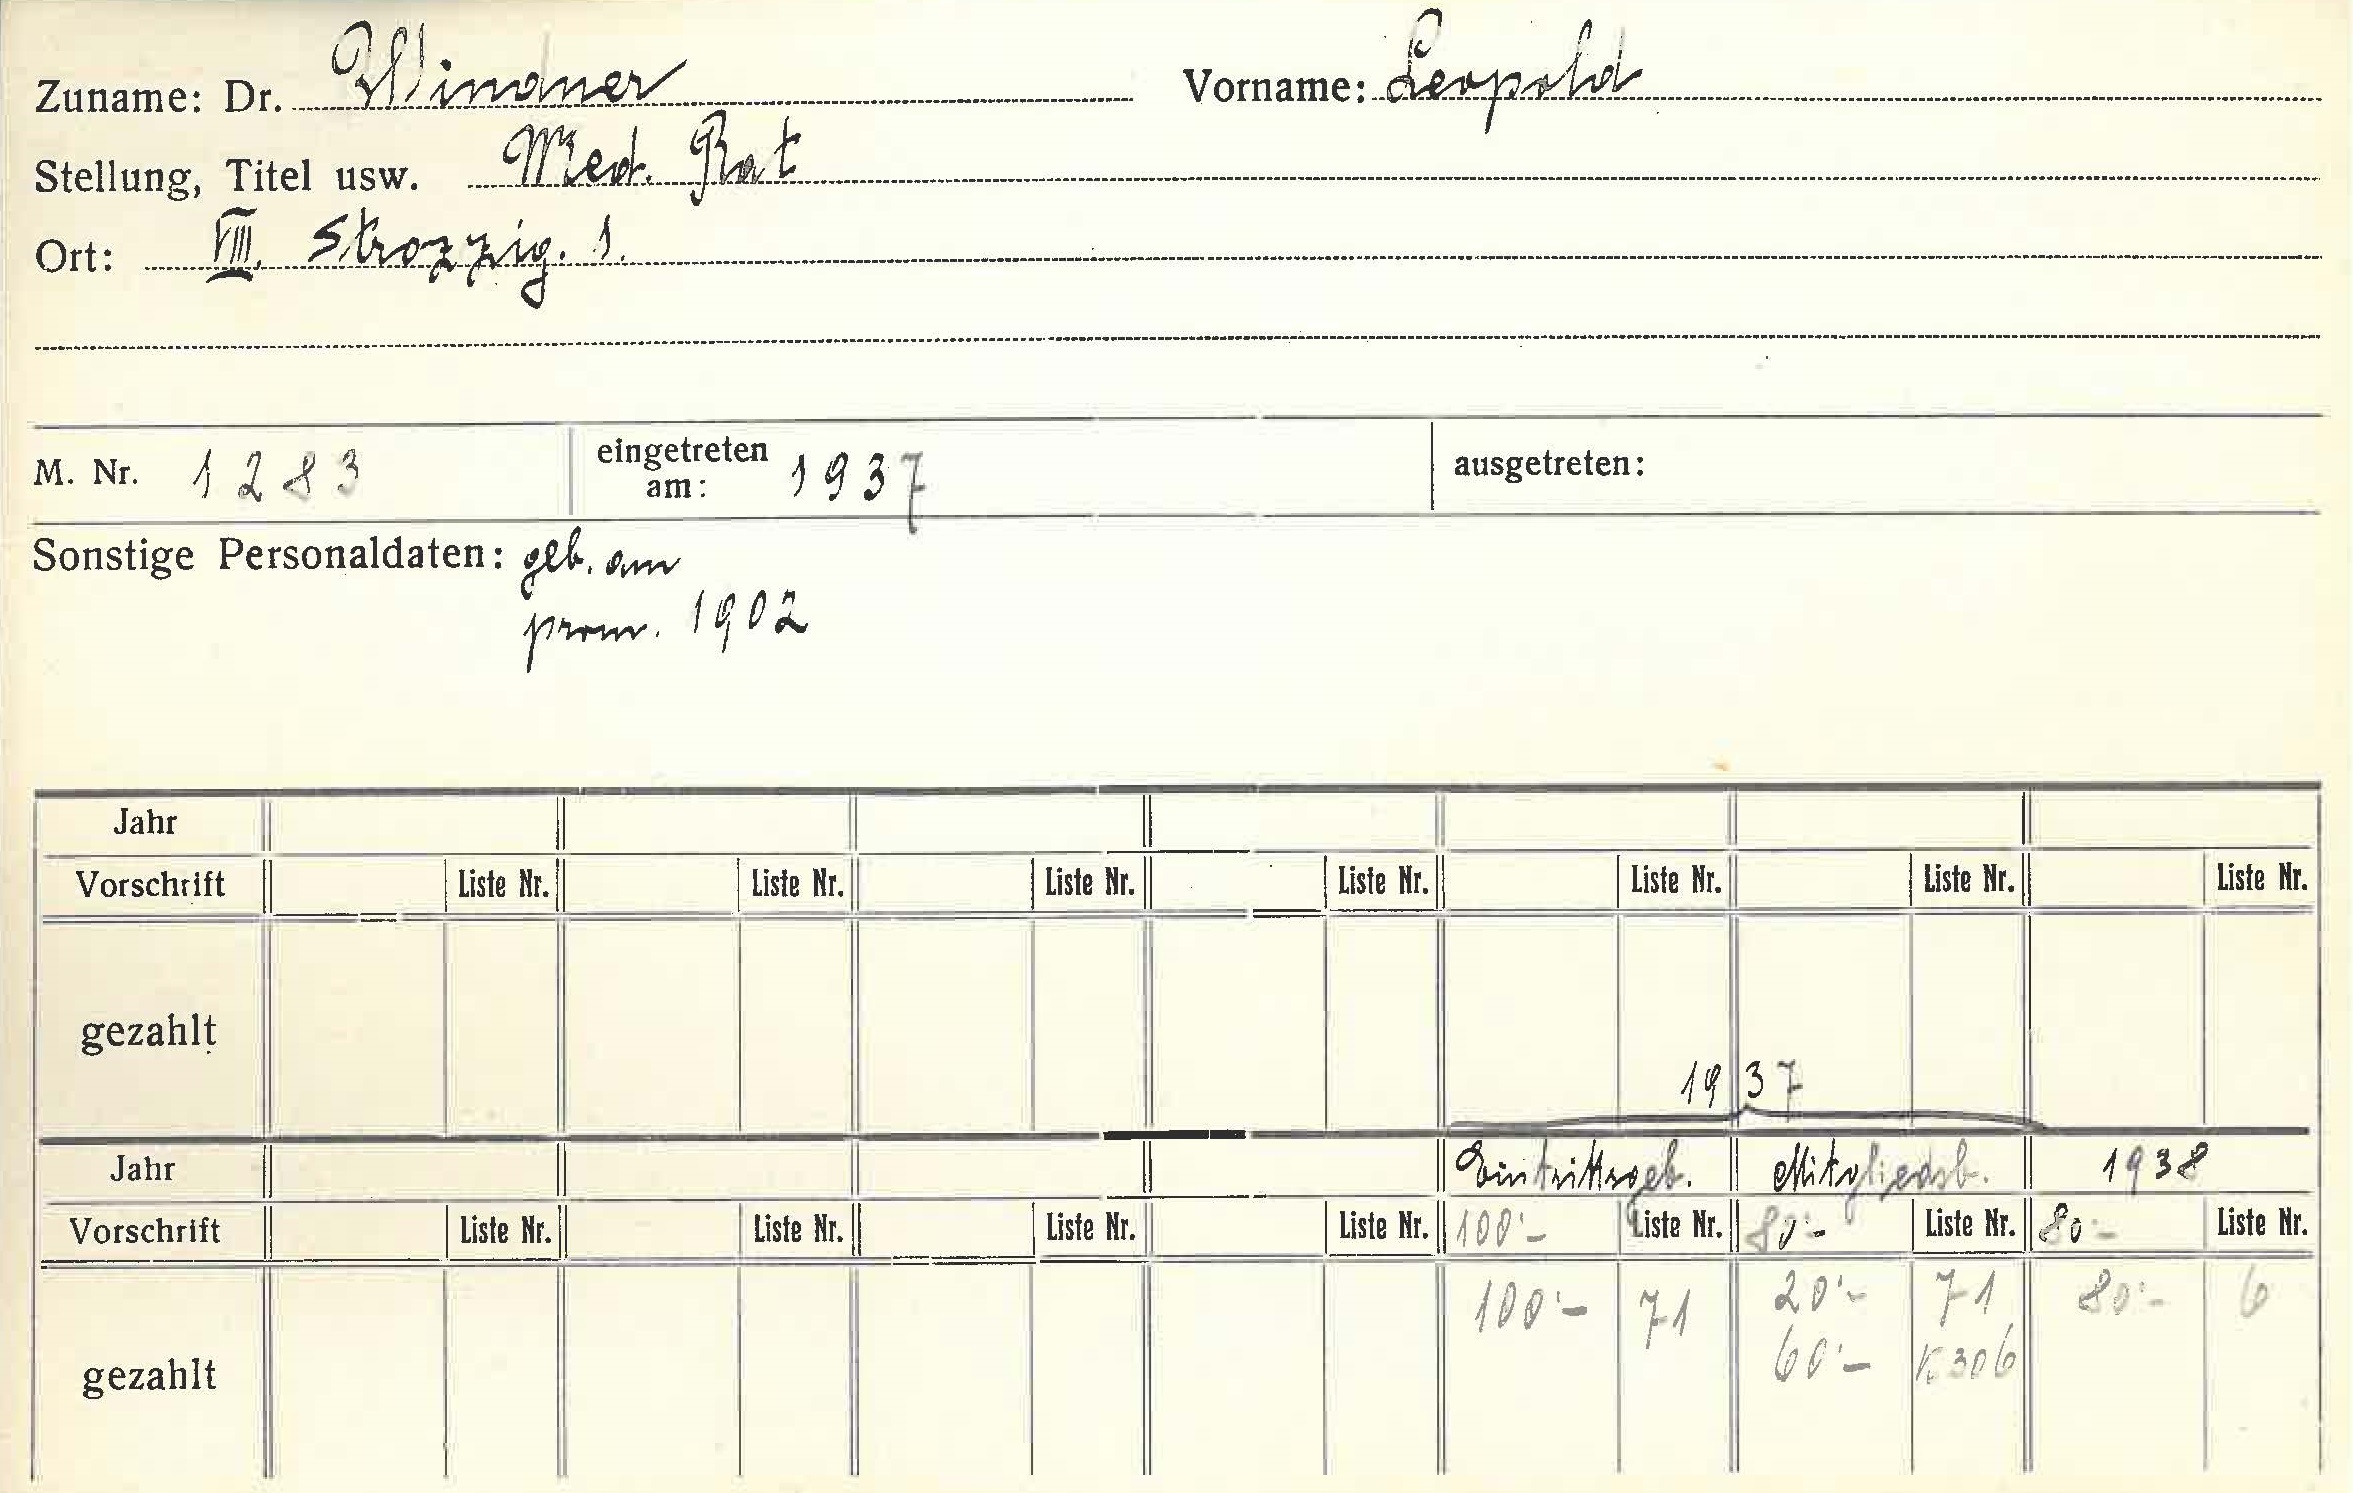 Zuname: Dr. Windner Vorname: Leopold
Stellung, Titel usw. Med. Rat
Ort: VIII. Strozzig. 1.
M. Nr. 1283 eingetreten am: 1937 ausgetreten:
Sonstige Personaldaten: geb. am
prom. 1902
Jahr
Vorschrift Liste Nr. Liste Nr. Liste Nr. Liste Nr. Liste Nr. Liste Nr. Liste Nr.
gezahlt
1937
Jahr Eintrittsgeb. Mitgliedsb. 1938
Vorschrift Liste Nr. Liste Nr. Liste Nr. Liste Nr. 100'- Liste Nr. 80'- Liste Nr. 80'- Liste Nr.
100'- 71 20'- 71 80'- 6
gezahlt 60'- K306